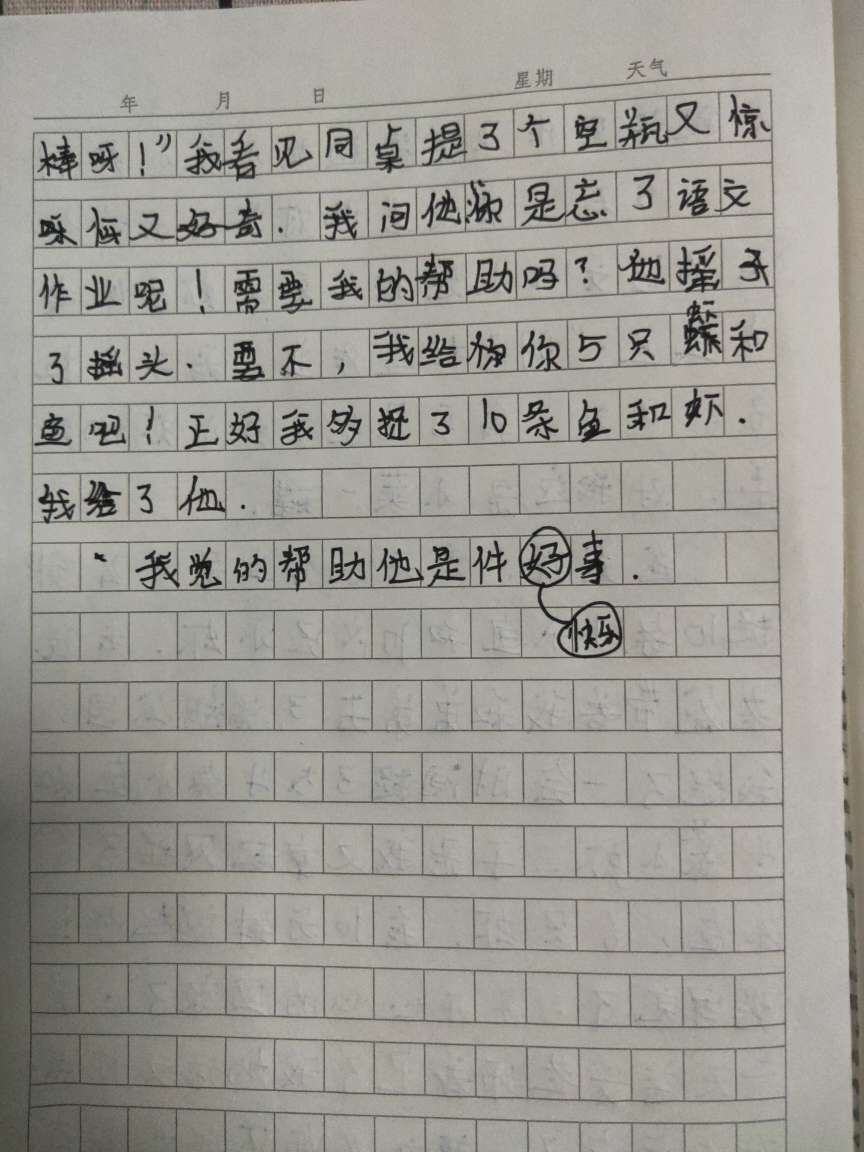 年 月 日 星期 天气
棒呀！”我看见同桌提了个空瓶又惊
呀怪又好奇.我问他你是忘了语文
作业呢！需要我的帮助吗？他摇了
了摇头.要不，我给你你5只和
鱼吧！正好我多捉了10条鱼和虾.
我给了他.
我觉的帮助他是件好事.
快乐